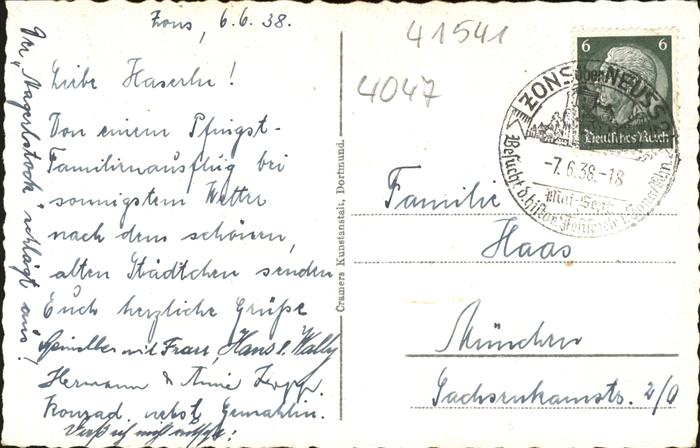 Zons, 6.6.38.
Liebe Haserln!
Von einem Pfingst-
Familienausflug bei
sonnigstem Wetter
nach dem schönen,
alten Städtchen senden
Euch herzliche Grüße
mit Frau, Hans & Wally
Hermann & Änne
Konrad nebst Gemahlin.
Der "Nagerlstock" schlägt aus!
Cramers Kunstanstalt, Dortmund.
41541
4047
6 6
Deutsches Reich
ZONS über NEUSS 2
-7.6.38.-18
Mai-Sept.
Besucht d. histor.
Familie
Haas
München
Sachsenkamstr. 2/0